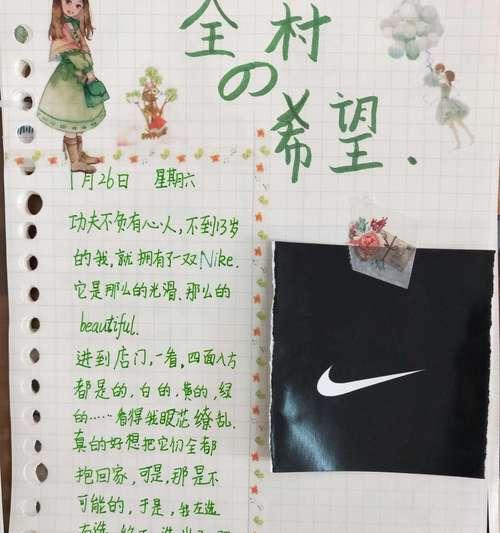 全村
の
希望.
1月26日 星期六
功夫不负有心人,不到13岁
的我,就拥有了一双Nike.
它是那么的光滑、那么的
beautiful.
进到店门,一看,四面八方
都是的,白的,黄的,绿
的……看得我眼花缭乱.
真的好想把它们全都
抱回家,可是,那是不
可能的,于是,我左选
右选